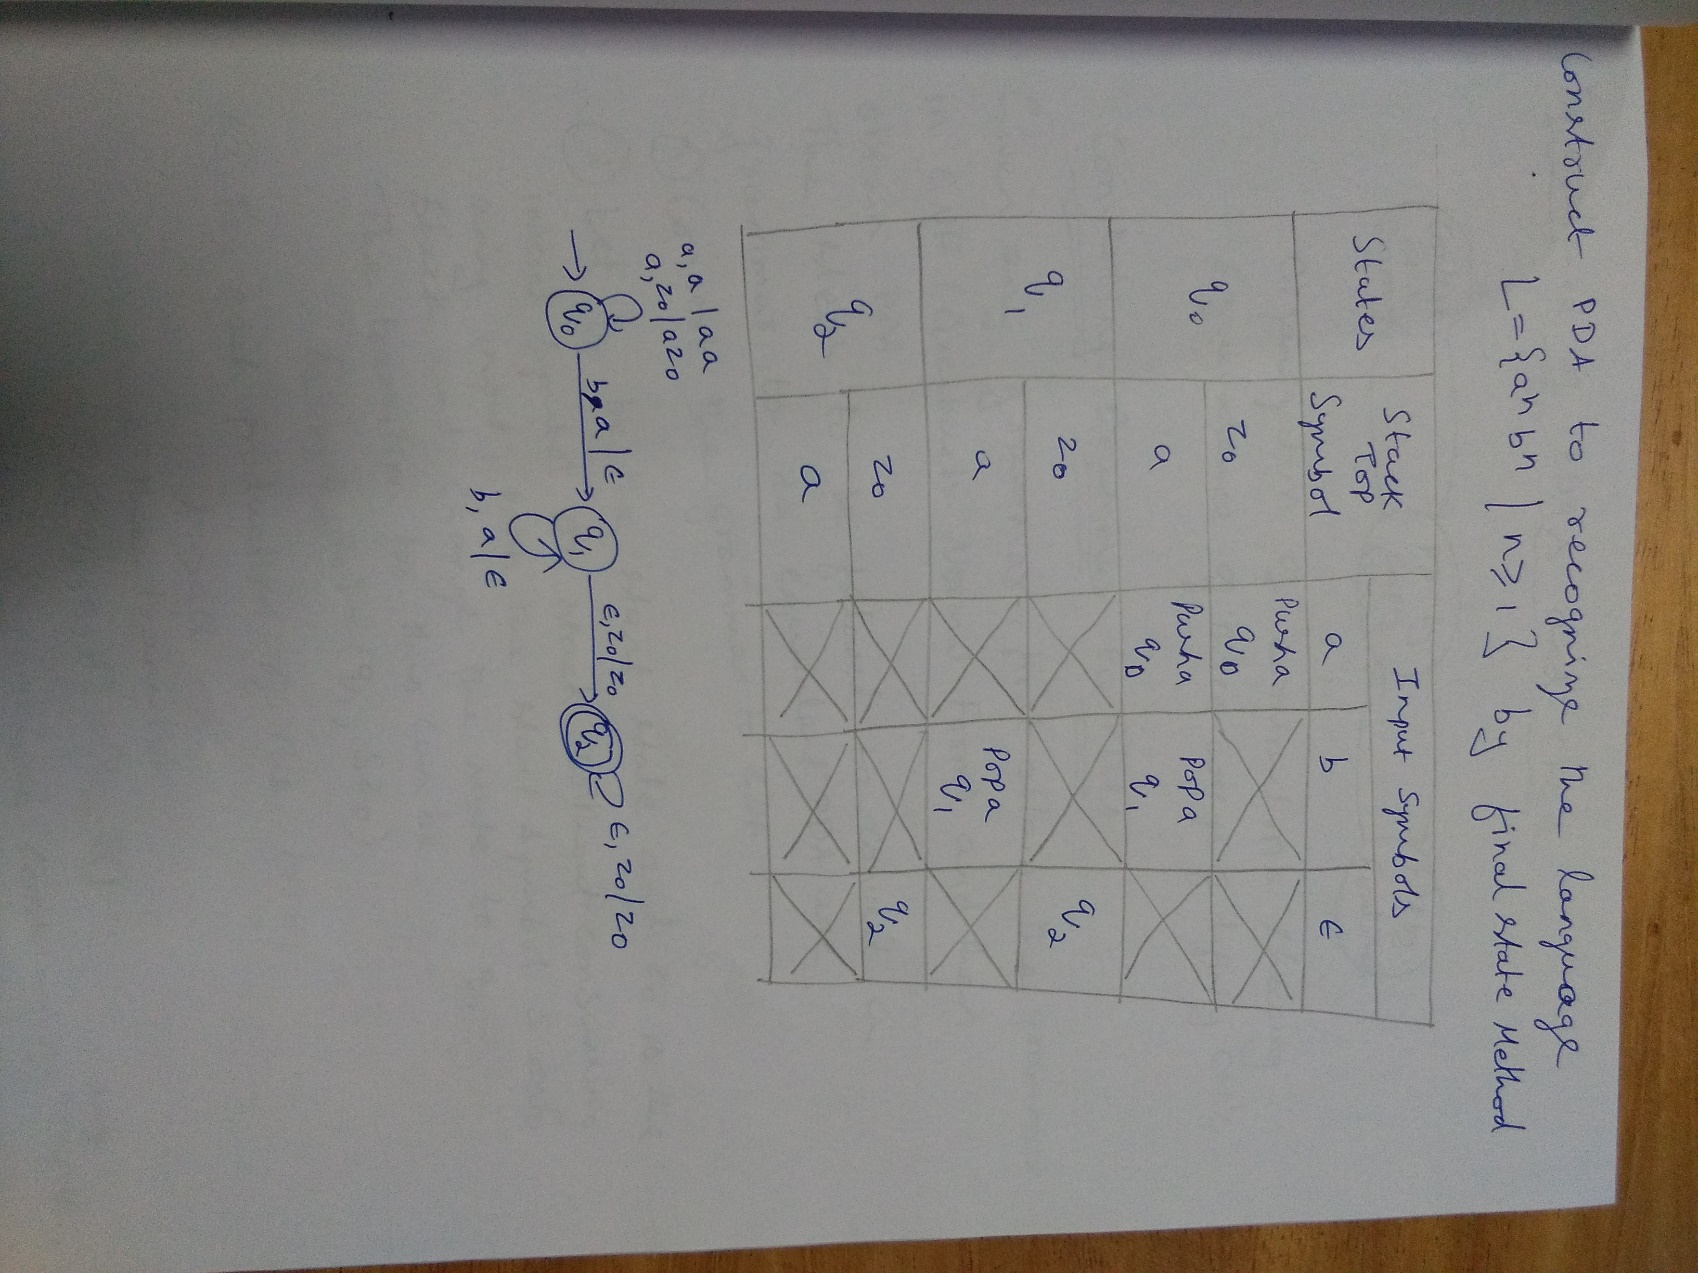 Construct PDA to recognize the language
L = {an bn | n ≥ 1} by final state Method
States Stack Top Symbol Input Symbols
a b ϵ
q0 z0 Push a q0
a Push a q0 Pop a q1
q1 z0 q2
a Pop a q1
q2 z0 q2
a
a, a | aa
a, z0 | az0
→ q0 b, a | ϵ q1 ϵ, z0 | z0 q2 ϵ, z0 | z0
b, a | ϵ